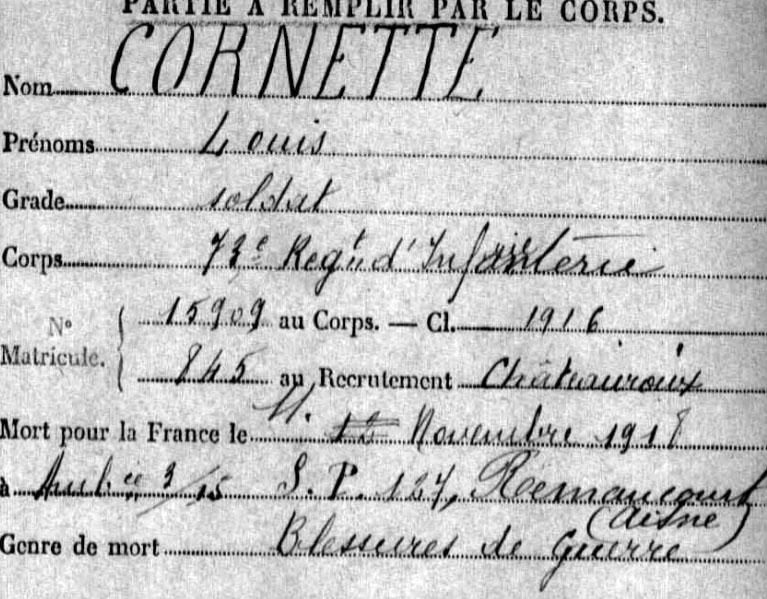 PARTIE A REMPLIR PAR LE CORPS.
Nom CORNETTE
Prénoms Louis
Grade soldat
Corps 73e Regt d'Infanterie
No Matricule. 15909 au Corps. — Cl. 1916
845 au Recrutement Châteauroux
Mort pour la France le 11. Novembre 1918
à Ambce 3/15 S.P. 127, Remaucourt
(Aisne)
Genre de mort Blessures de Guerre